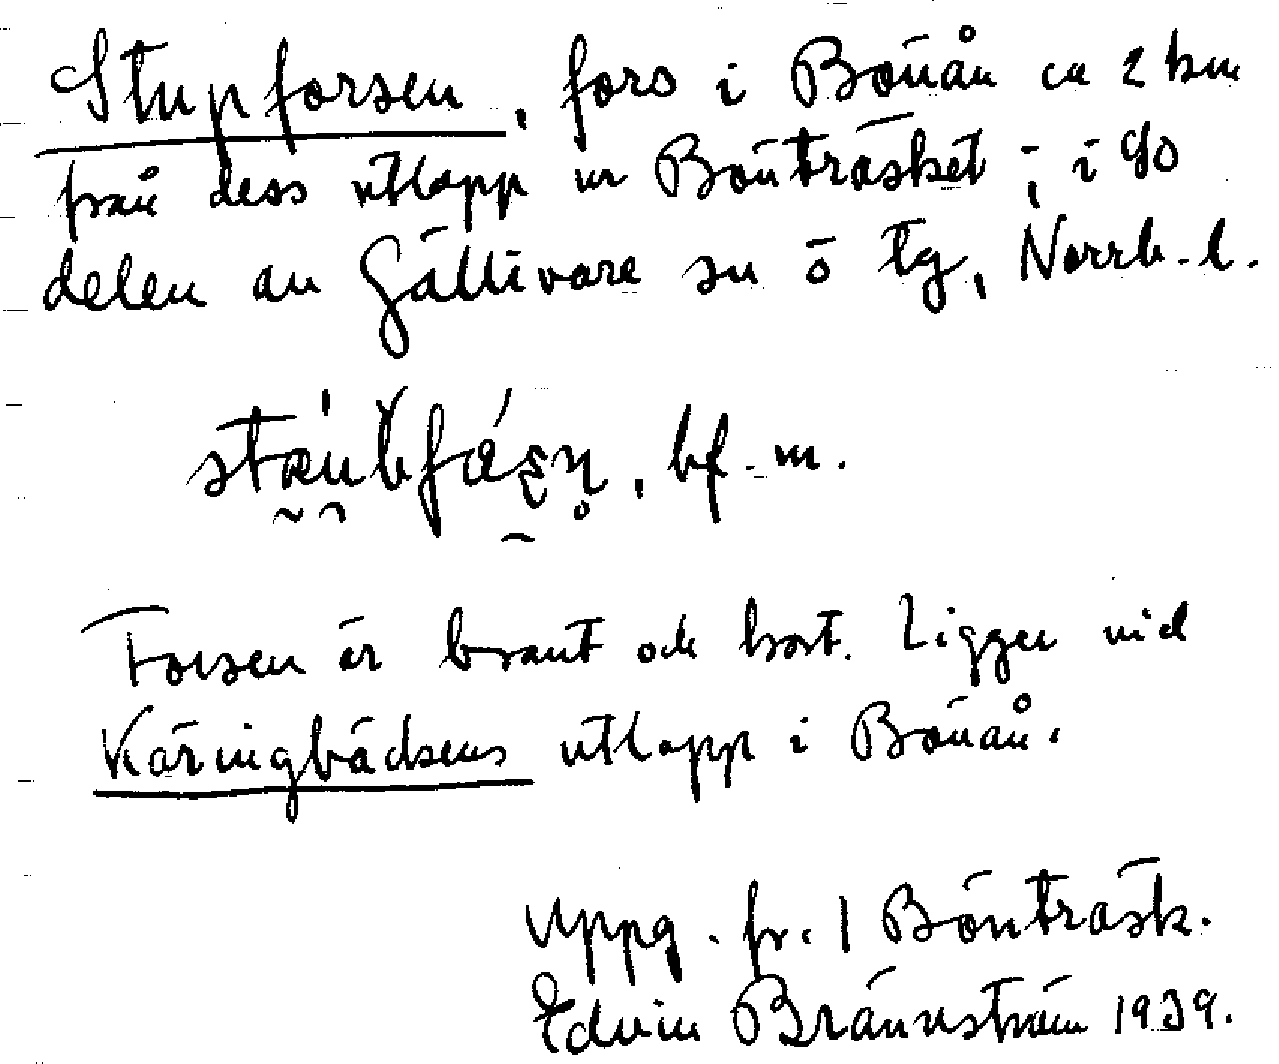 Stupforsen, fors i Bönån ca 2 km
från dess utlopp ur Bönträsket; i sö
delen av Gällivare sn ö tg, Norrb. l.
bf. m.
Forsen är brant och kort. Ligger vid
Käringbäckens utlopp i Bönån.
Uppg. fr. 1 Bönträsk.
Edvin Brännström 1939.